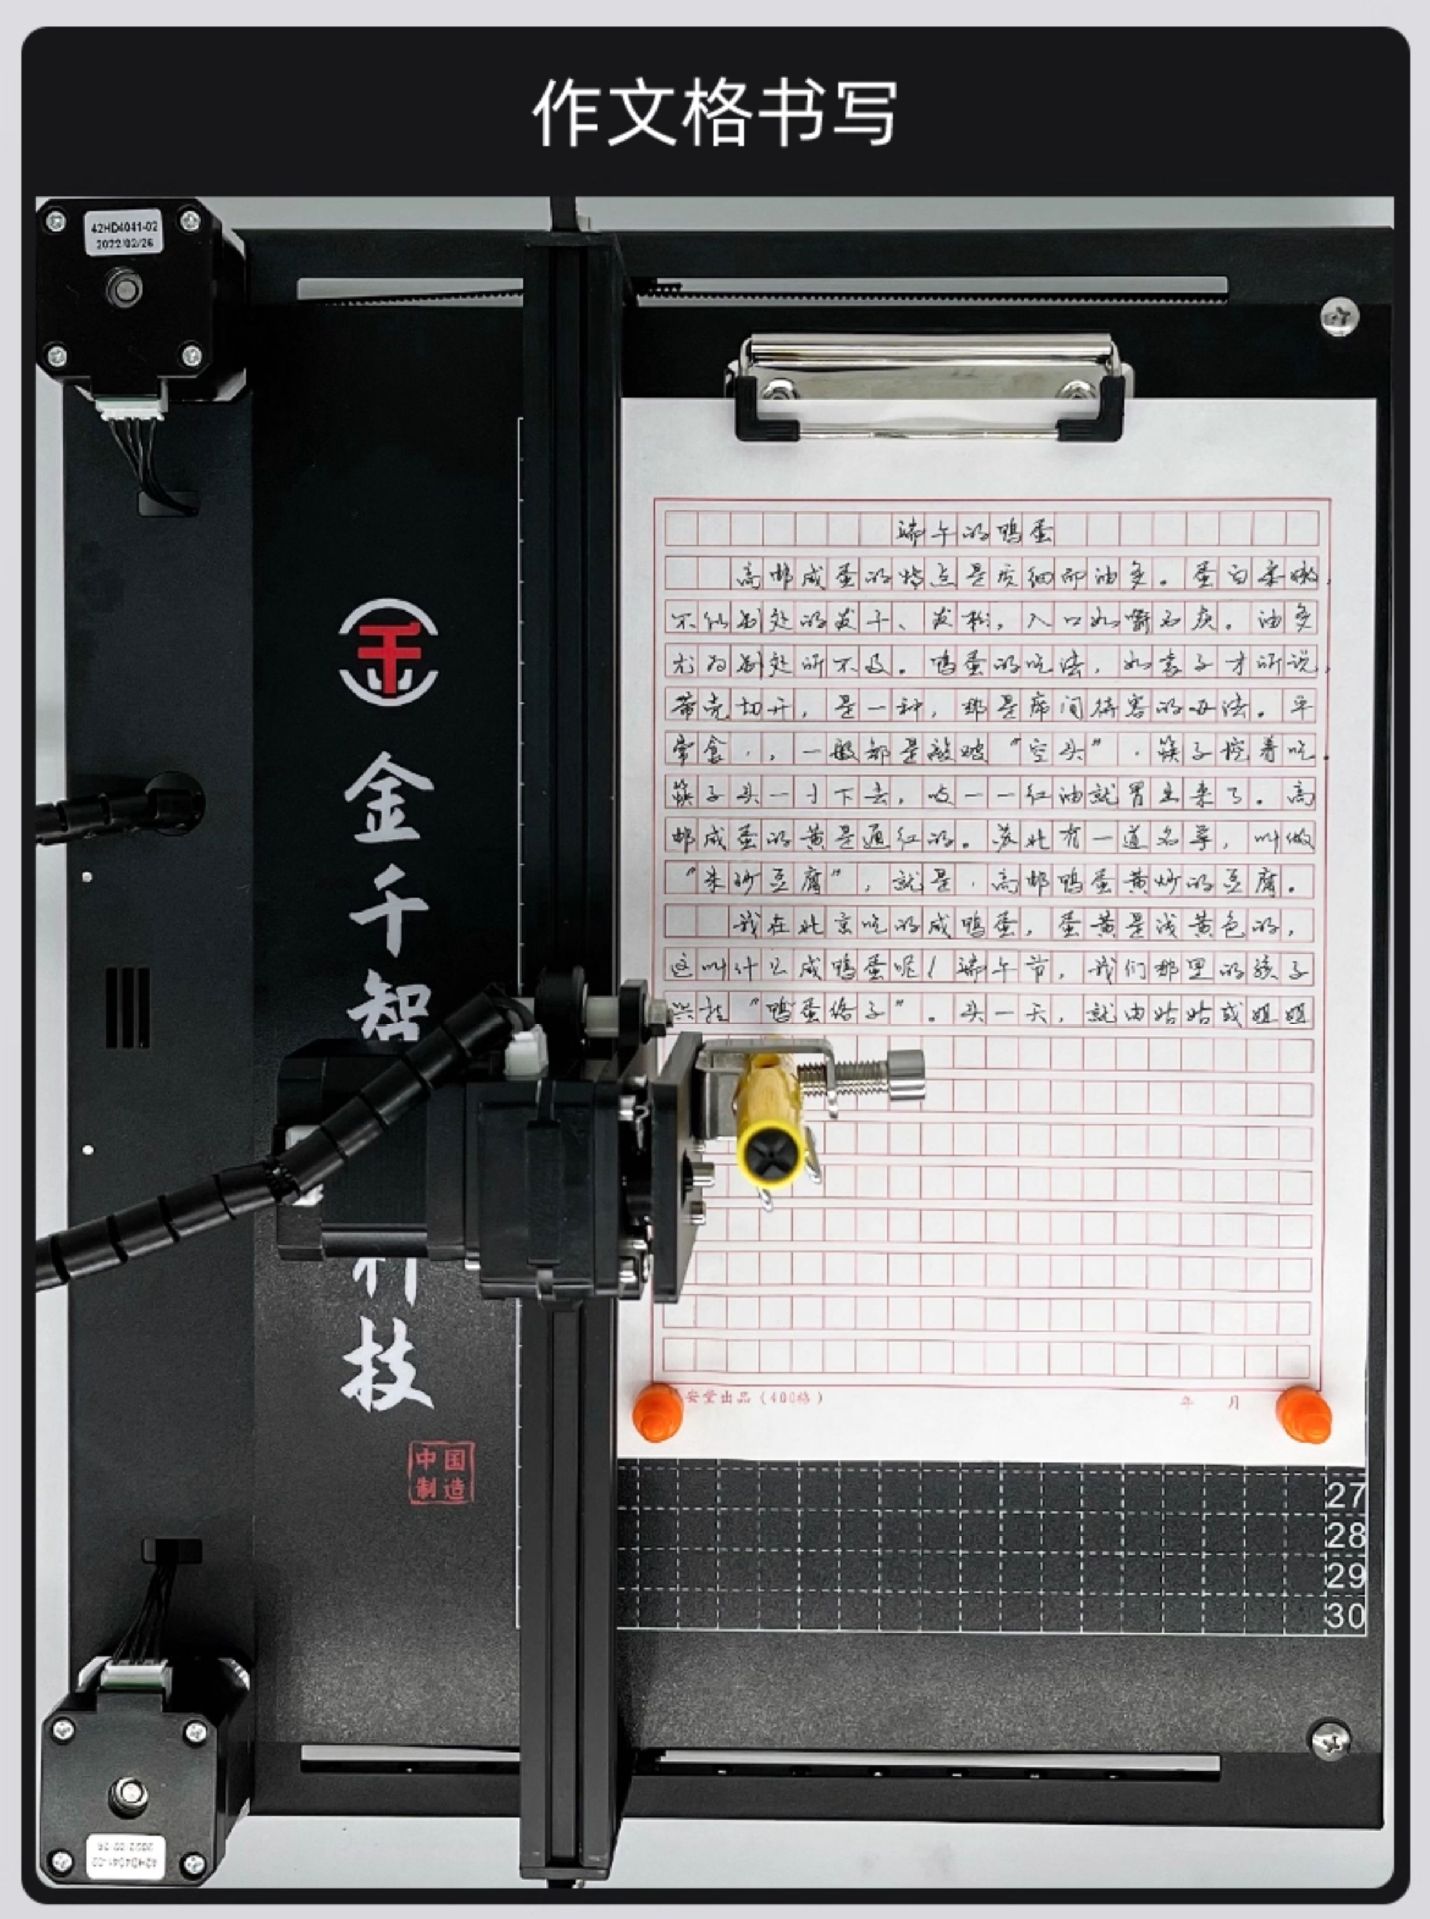 作文格书写
42HD4041-02
2022/02/26
金千智
科技
中国
制造
端午的鸭蛋
高邮咸蛋的特点是质细而油多。蛋白柔嫩，
不似别处的发干、发粉，入口如嚼石灰。油多
尤为别处所不及。鸭蛋的吃法，如袁子才所说，
带壳切开，是一种，那是席间待客的办法。平
常食，，一般都是敲破“空头”，筷子挖着吃。
筷子头一扎下去，吱——红油就冒出来了。高
邮咸蛋的黄是通红的。苏北有一道名菜，叫做
“朱砂豆腐”，就是，高邮鸭蛋黄炒的豆腐。
我在北京吃的咸鸭蛋，蛋黄是浅黄色的，
这叫什么咸鸭蛋呢！端午节，我们那里的孩子
兴挂“鸭蛋络子”。头一天，就由姑姑或姐姐
安堂出品（400格）
年 月
27
28
29
30
42HD4041-02
2022/02/26